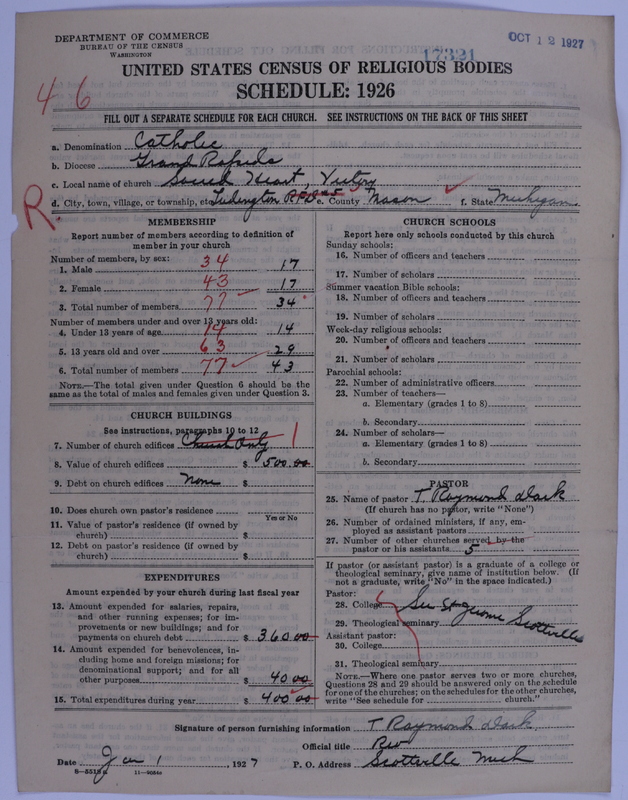 DEPARTMENT OF COMMERCE
BUREAU OF THE CENSUS
WASHINGTON
17321
OCT 12 1927
UNITED STATES CENSUS OF RELIGIOUS BODIES
SCHEDULE: 1926
46
FILL OUT A SEPARATE SCHEDULE FOR EACH CHURCH. SEE INSTRUCTIONS ON THE BACK OF THIS SHEET
a. Denomination Catholic
b. Diocese Grand Rapids
c. Local name of church Sacred Heart, Victory
d. City, town, village, or township, etc. Ludington RFD e. County Mason f. State Michigan
R.
MEMBERSHIP
Report number of members according to definition of member in your church
Number of members, by sex:
1. Male 34 17
2. Female 43 17
3. Total number of members 77 34
Number of members under and over 13 years old:
4. Under 13 years of age 14 14
5. 13 years old and over 63 29
6. Total number of members 77 43
NOTE.—The total given under Question 6 should be the same as the total of males and females given under Question 3.
CHURCH BUILDINGS
See instructions, paragraphs 10 to 12
7. Number of church edifices Church Only 1
8. Value of church edifices $ 500.00
9. Debt on church edifices None $
10. Does church own pastor's residence
Yes or No
11. Value of pastor's residence (if owned by church) $
12. Debt on pastor's residence (if owned by church) $
EXPENDITURES
Amount expended by your church during last fiscal year
13. Amount expended for salaries, repairs, and other running expenses; for improvements or new buildings; and for payments on church debt $ 360.00
14. Amount expended for benevolences, including home and foreign missions; for denominational support; and for all other purposes $ 40 00
15. Total expenditures during year $ 400 00
CHURCH SCHOOLS
Report here only schools conducted by this church
Sunday schools:
16. Number of officers and teachers
17. Number of scholars
Summer vacation Bible schools:
18. Number of officers and teachers
19. Number of scholars
Week-day religious schools:
20. Number of officers and teachers
21. Number of scholars
Parochial schools:
22. Number of administrative officers
23. Number of teachers—
a. Elementary (grades 1 to 8)
b. Secondary
24. Number of scholars—
a. Elementary (grades 1 to 8)
b. Secondary
PASTOR
25. Name of pastor T. Raymond
(If church has no pastor, write "None")
26. Number of ordained ministers, if any, employed as assistant pastors
27. Number of other churches served by the pastor or his assistants 5
If pastor (or assistant pastor) is a graduate of a college or theological seminary, give name of institution below. (If not a graduate, write "No" in the space indicated.)
Pastor:
28. College See St Jerome Scottville
29. Theological seminary
Assistant pastor:
30. College
31. Theological seminary
NOTE.—Where one pastor serves two or more churches, Questions 28 and 29 should be answered only on the schedule for one of the churches; on the schedules for the other churches, write "See schedule for church."
Signature of person furnishing information T Raymond
Official title Rev
Date Jan 1, 1927 P. O. Address Scottville Mich